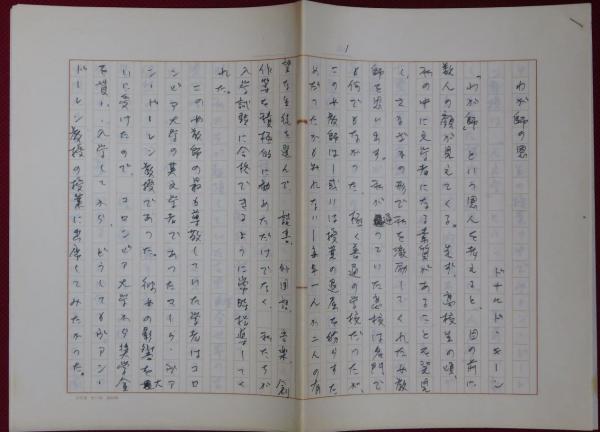 1
わが師の恩
ドナルド・キーン
「わが師」という恩人を考えると、目の前に
数人の顔が見えてくる。先ず、高校生の頃、
私の中に文学者になる素質があることを発見
し、さまざまの形で私を激励してくれた女教
師を思い出す。私が通っていた高校は名門で
も何でもなかった。極く普通の学校だったが、
この女教師は――或いは授業の退屈を紛らすた
めだったかも知れない――毎年一人か二人の有
望な生徒を選んで、読書、外国語、音楽、創
作等を積極的に勧めただけでなく、私たちが
入学試験に合格できるように常時指導してく
れた。
この女教師の最も尊敬していた学者はコロ
ンビア大学の英文学者であったマーク・ヴァ
ン・ドーレン教授であった。彼女の影響を大
いに受けたので、コロンビア大学から奨学金
を貰い、入学してから、どうしてもヴァン・
ドーレン教授の授業に出席してみたかった。